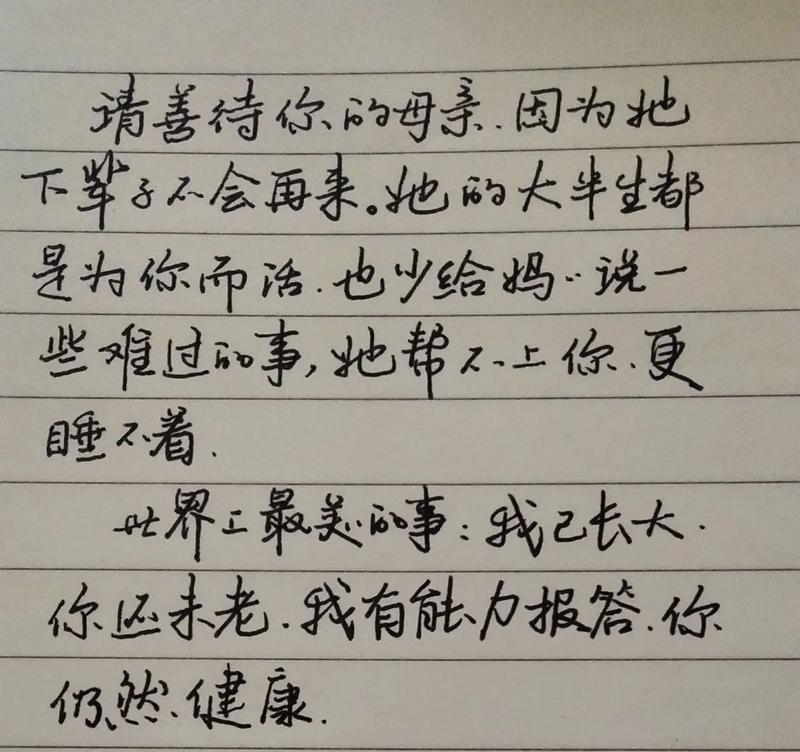 请善待你的母亲.因为她
下辈子不会再来。她的大半生都
是为你而活.也少给妈..说一
些难过的事,她帮不上你.更
睡不着.
世界上最美的事:我已长大.
你还未老.我有能力报答.你
仍然健康.